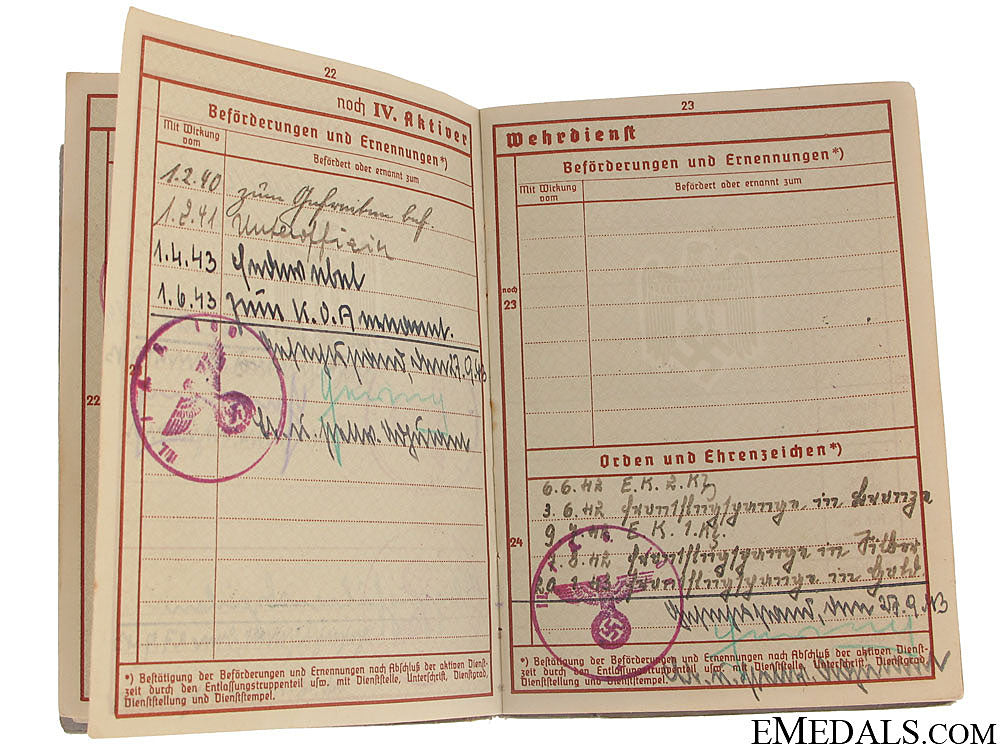 22
noch IV. Aktiver
Beförderungen und Ernennungen*)
Mit Wirkung vom
Befördert oder ernannt zum
1.2.40 zum Gefreiten bef.
1.2.41 Unteroffizier
1.4.43 Feldwebel
1.6.43 zum K.O.A ernannt.
den 27.9.43
22
*) Bestätigung der Beförderungen und Ernennungen nach Abschluß der aktiven Dienst-
zeit durch den Entlassungstruppenteil usw. mit Dienststelle, Unterschrift, Dienstgrad,
Dienststellung und Dienststempel.
23
Wehrdienst
Beförderungen und Ernennungen*)
Mit Wirkung vom
Befördert oder ernannt zum
noch
23
Orden und Ehrenzeichen*)
6.6.42 E.K. 2. Kl.
3.6.42 Frontflugspange in Bronze
E.K. 1. Kl.
8.42 Frontflugspange in Silber
Frontflugspange in Gold
24
den 27.9.43
*) Bestätigung der Beförderungen und Ernennungen nach Abschluß der aktiven Dienst-
zeit durch den Entlassungstruppenteil usw. mit Dienststelle, Unterschrift, Dienstgrad,
Dienststellung und Dienststempel.
EMEDALS.COM